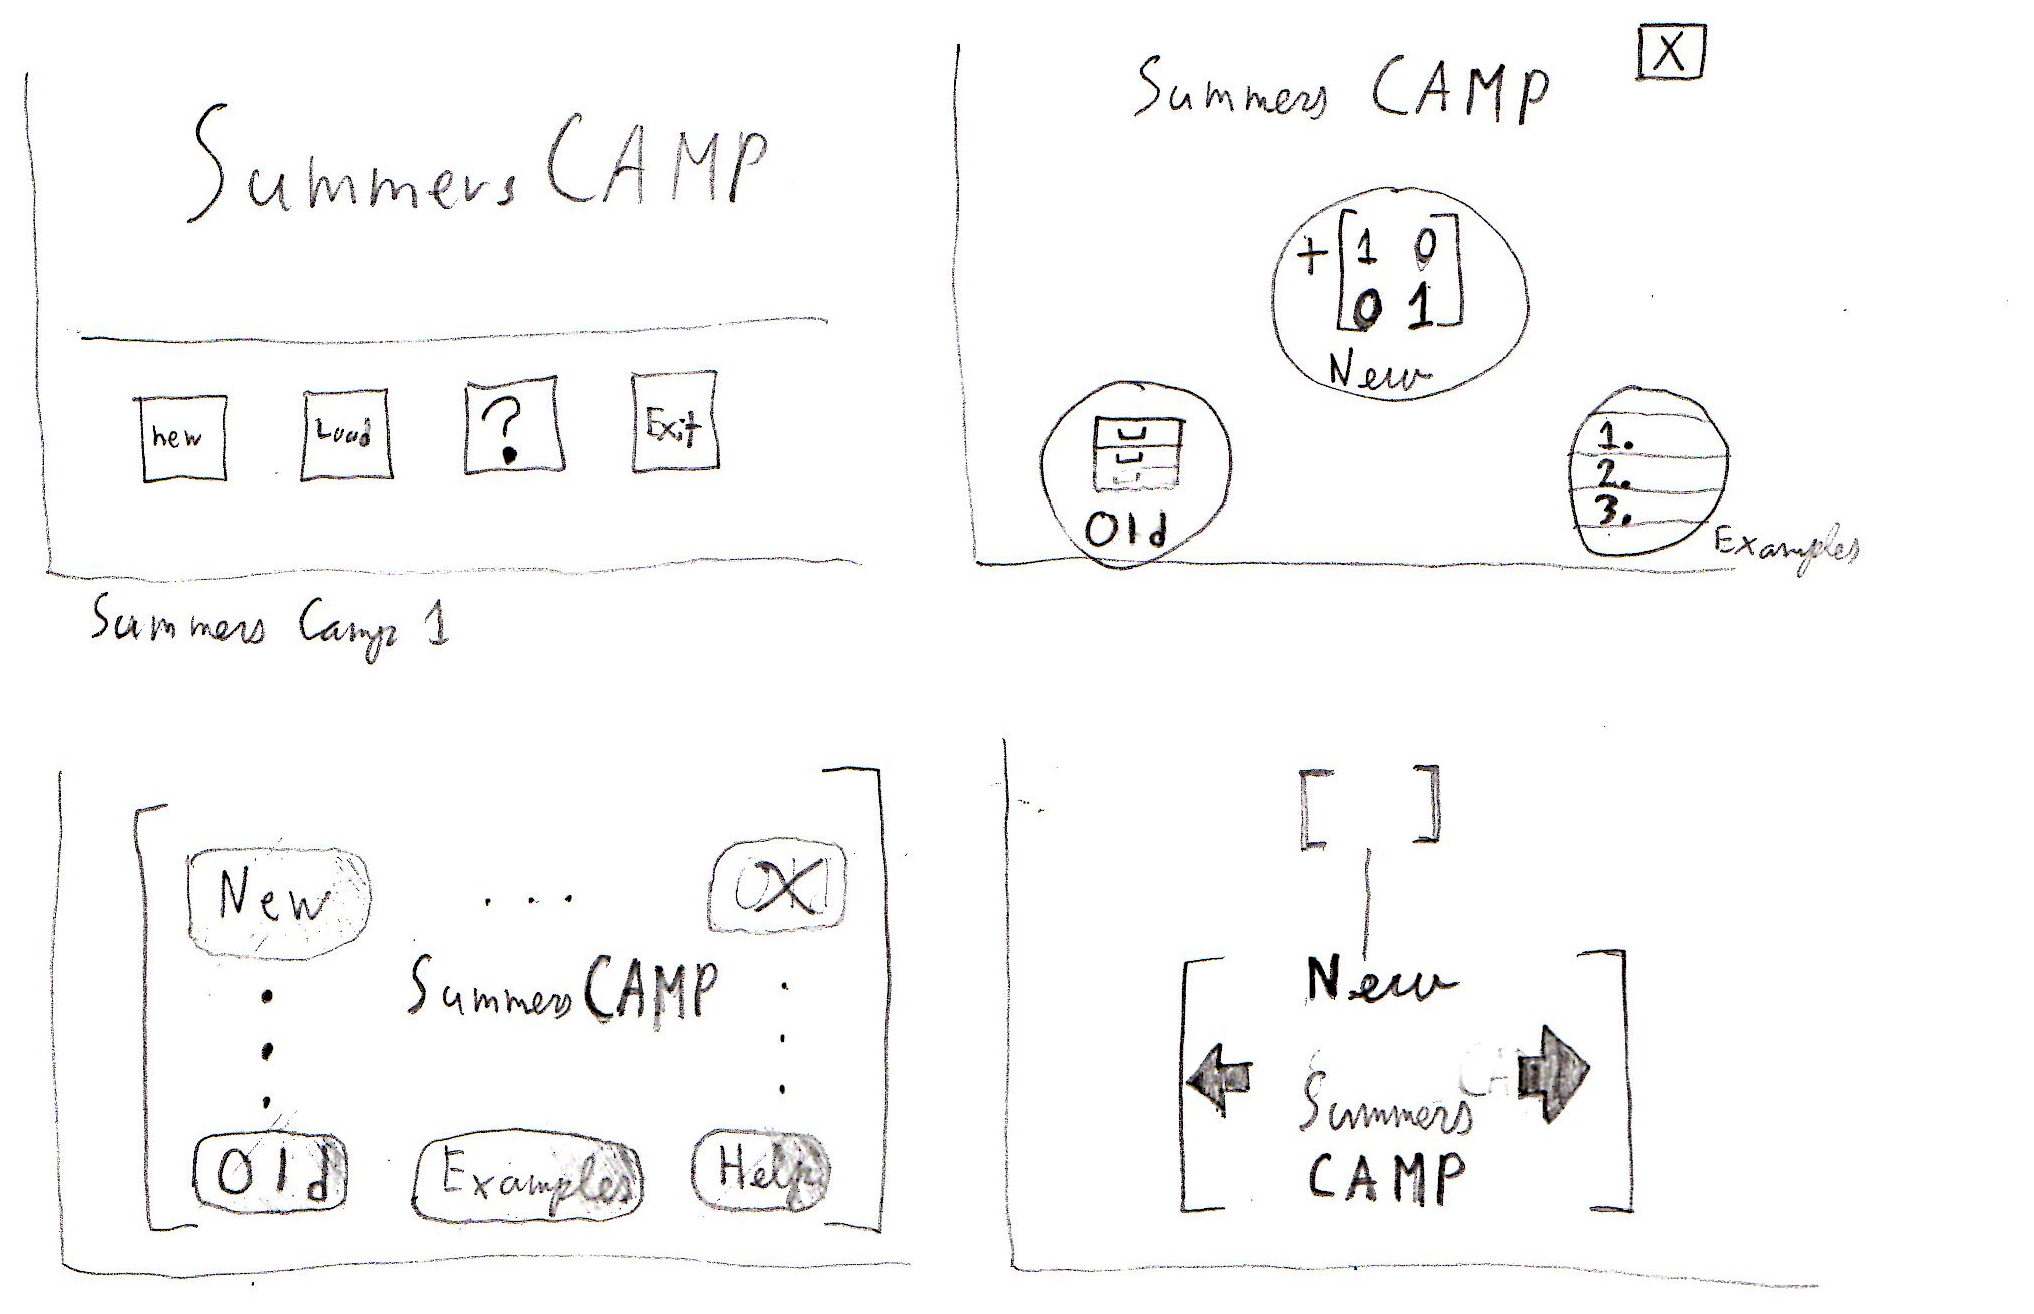 Summers CAMP
new Load ? Exit
Summers Camp 1
Summers CAMP X
+ [1 0
0 1]
New
Old
1.
2.
3.
Examples
New ... X
Summers CAMP
Old Examples Help
[ ]
New
Summers
CAMP